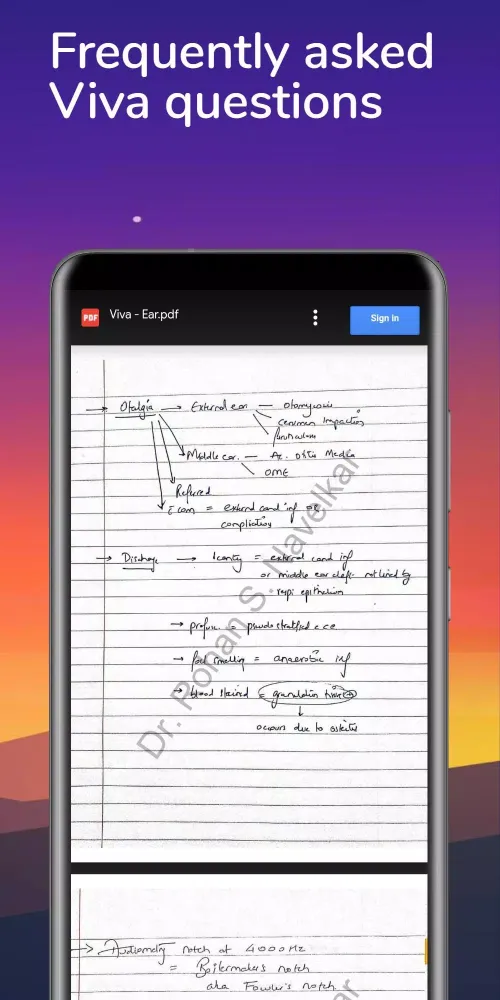 Frequently asked
Viva questions
PDF
Viva - Ear.pdf
Sign in
→ Otalgia → External ear — otomycosis
cerumen impaction
furunculosis
Middle ear. — Ac. otitis Media
OME
Referred
= external canal inf or
complication
→ Discharge → Scanty = external canal inf
or middle ear cleft not lined by
respi epithelium
→ profuse = pseudostratified c.c.e.
→ foul smelling = anaerobic inf
→ blood stained = granulation tissue
↓
occurs due to osteitis
Dr. Rohan S. Navelkar
→ Audiometry notch at 4000Hz
= Boilermaker's notch
aka Fowler's notch